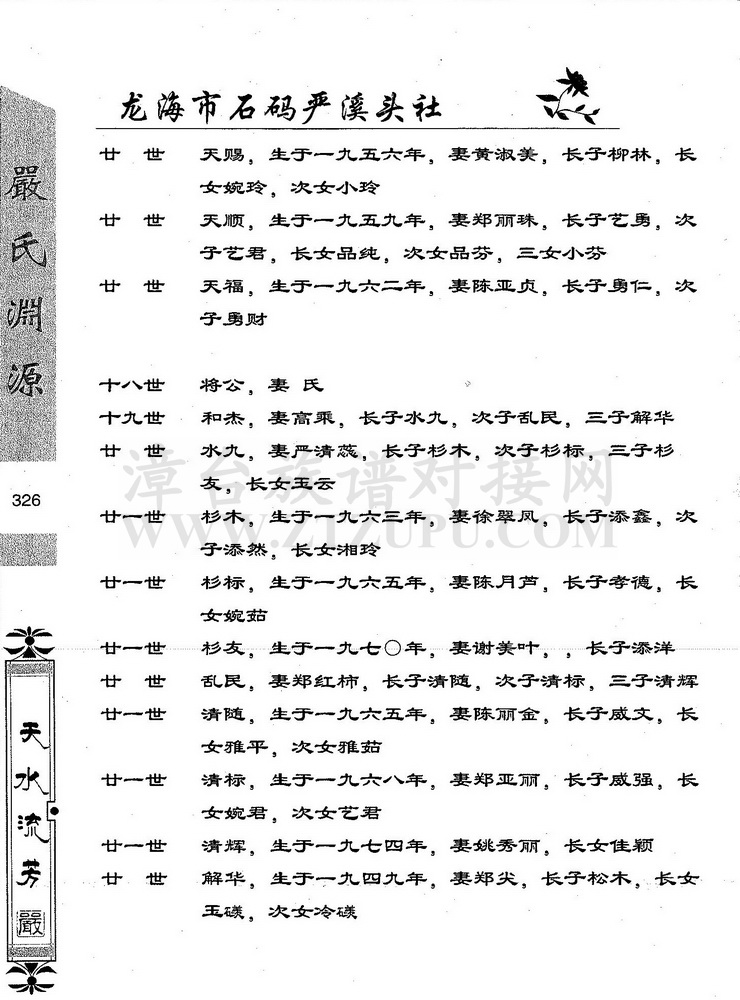 龙海市石码严溪头社
廿 世 天赐，生于一九五六年，妻黄淑美，长子柳林，长
女婉玲，次女小玲
廿 世 天顺，生于一九五九年，妻郑丽珠，长子艺勇，次
子艺君，长女品纯，次女品芬，三女小芬
廿 世 天福，生于一九六二年，妻陈亚贞，长子勇仁，次
子勇财
十八世 将公，妻 氏
十九世 和杰，妻高乘，长子水九，次子乱民，三子解华
廿 世 水九，妻严清蕊，长子杉木，次子杉标，三子杉
友，长女玉云
廿一世 杉木，生于一九六三年，妻徐翠凤，长子添鑫，次
子添然，长女湘玲
廿一世 杉标，生于一九六五年，妻陈月芦，长子孝德，长
女婉茹
廿一世 杉友，生于一九七〇年，妻谢美叶，，长子添洋
廿 世 乱民，妻郑红柿，长子清随，次子清标，三子清辉
廿一世 清随，生于一九六五年，妻陈丽金，长子威文，长
女雅平，次女雅茹
廿一世 清标，生于一九六八年，妻郑亚丽，长子威强，长
女婉君，次女艺君
廿一世 清辉，生于一九七四年，妻姚秀丽，长女佳颖
廿 世 解华，生于一九四九年，妻郑尖，长子松木，长女
玉礒，次女冷礒
嚴氏淵源
326
天水流芳
嚴
漳台族谱对接网
WWW.ZTZUPU.COM